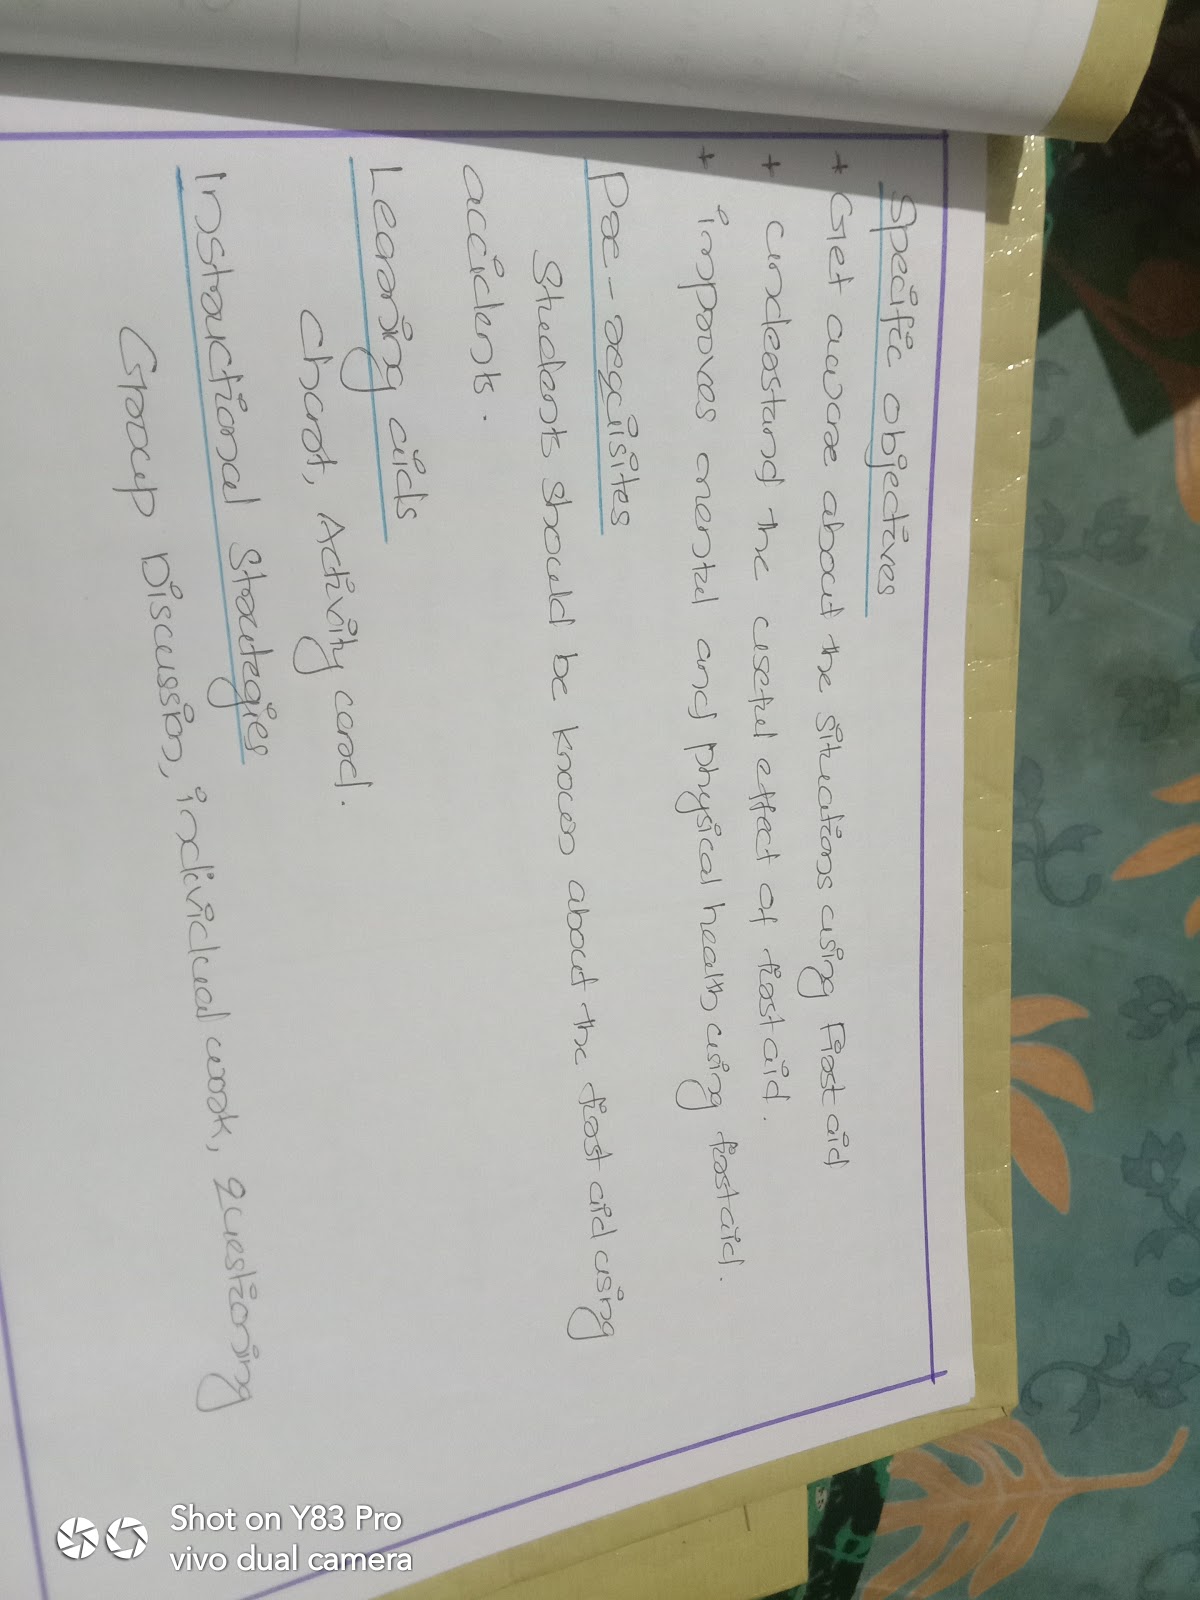 Specific objectives
+ Get aware about the situations using First aid
+ understand the useful effect of first aid.
+ improves mental and physical health using first aid.
Pre-requisites
Students should be known about the first aid using
accidents.
Learning aids
Chart, Activity card.
Instructional Strategies
Group Discussion, individual work, questioning
Shot on Y83 Pro
vivo dual camera